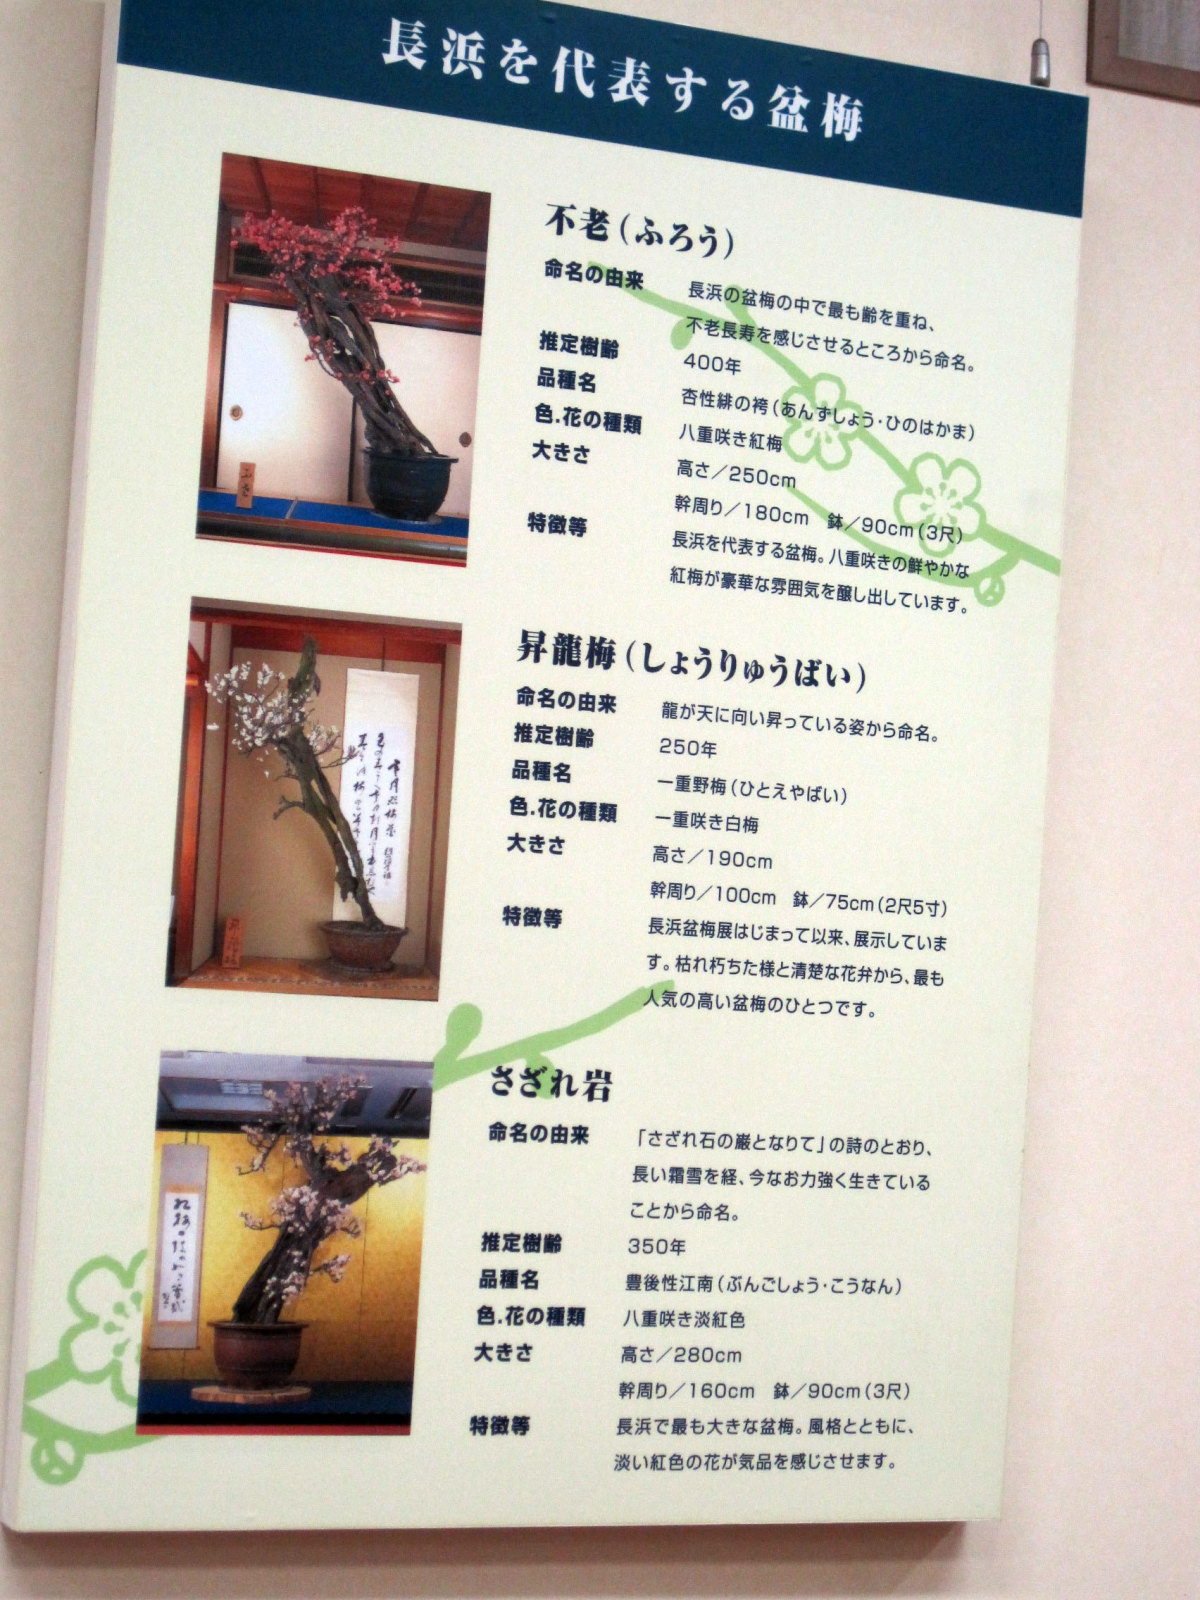 長浜を代表する盆梅
不老(ふろう)
命名の由来 長浜の盆梅の中で最も齢を重ね、
不老長寿を感じさせるところから命名。
推定樹齢 400年
品種名 杏性緋の袴(あんずしょう・ひのはかま)
色.花の種類 八重咲き紅梅
大きさ 高さ/250cm
幹周り/180cm 鉢/90cm(3尺)
特徴等 長浜を代表する盆梅。八重咲きの鮮やかな
紅梅が豪華な雰囲気を醸し出しています。
昇龍梅(しょうりゅうばい)
命名の由来 龍が天に向い昇っている姿から命名。
推定樹齢 250年
品種名 一重野梅(ひとえやばい)
色.花の種類 一重咲き白梅
大きさ 高さ/190cm
幹周り/100cm 鉢/75cm(2尺5寸)
特徴等 長浜盆梅展はじまって以来、展示していま
す。枯れ朽ちた様と清楚な花弁から、最も
人気の高い盆梅のひとつです。
さざれ岩
命名の由来 「さざれ石の巌となりて」の詩のとおり、
長い霜雪を経、今なお力強く生きている
ことから命名。
推定樹齢 350年
品種名 豊後性江南(ぶんごしょう・こうなん)
色.花の種類 八重咲き淡紅色
大きさ 高さ/280cm
幹周り/160cm 鉢/90cm(3尺)
特徴等 長浜で最も大きな盆梅。風格とともに、
淡い紅色の花が気品を感じさせます。